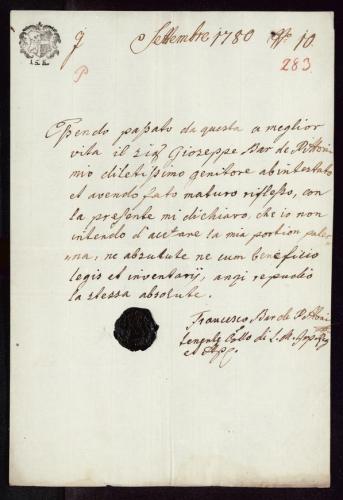 9 Settembre 1780 N° 10
P 283
Essendo passato da questa a meglior
vita il Sig Gioseppe Bar de Pittoni
mio diletissimo genitore ab intestato
et avendo fato maturo riflesso, con
la presente mi dichiaro, che io non
intendo d'accetare la mia portion pater=
na, ne absolute ne cum beneficio
legis et inventarij, anzi repudio
la stessa absolute.
Francesco Bar de Pittoni
di S. M.
et